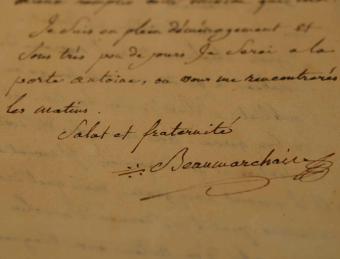 Je suis en plein déménagement et
sous très peu de jours Je serai a la
porte antoine, ou vous me rencontrerés
les matins.
Salut et fraternité
Beaumarchais